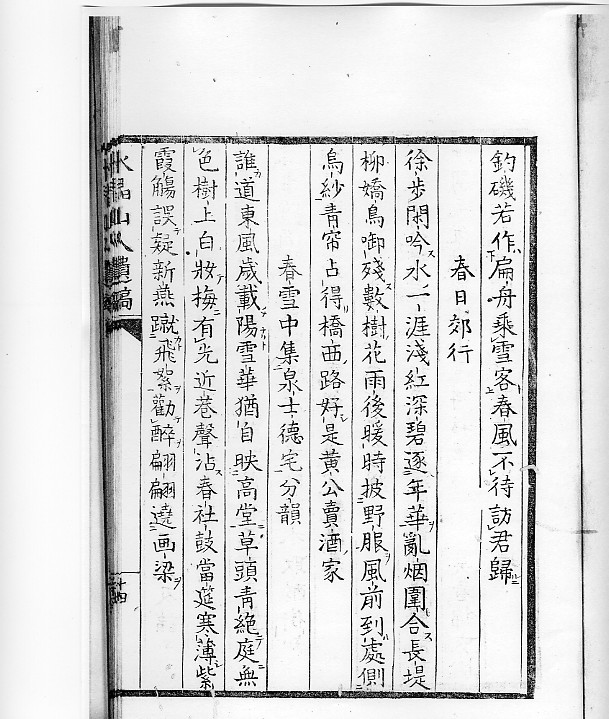 釣磯若作扁舟乘雪客春風不待訪君歸
春日郊行
徐步閑吟水一涯淺紅深碧逐年華亂烟圍合長堤
柳嬌鳥啣殘數樹花雨後暖時披野服風前到處側
烏紗青帘占得橋西路好是黄公賣酒家
春雪中集泉士德宅分韻
誰道東風歲載陽雪華猶自映高堂草頭青絶庭無
色樹上白妝梅有光近巷聲沾春社鼓當筵寒薄紫
霞觴誤疑新燕蹴飛絮勸醉翩翩遶画梁
山人遺稿
十四